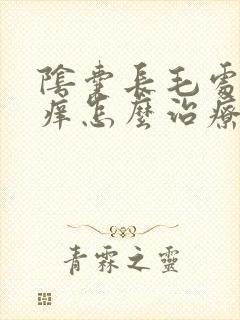 陰囊長毛處
痒怎麼治療
青霖之靈